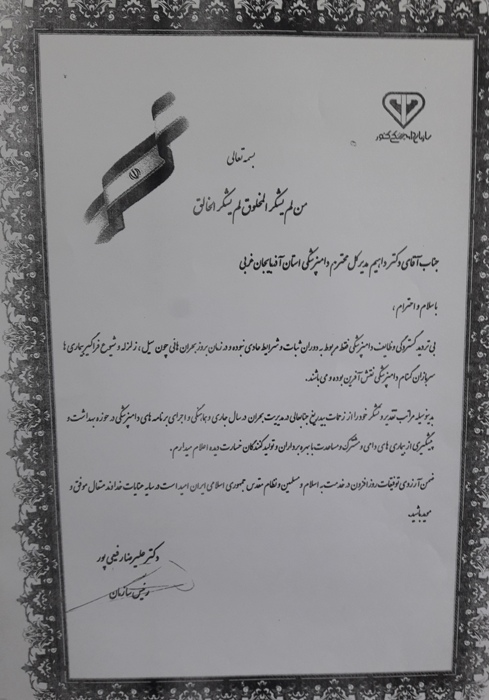 سازمان دامپزشکی کشور
بسمه تعالی
من لم یشکر المخلوق لم یشکر الخالق
جناب آقای دکتر داهیم مدیر کل محترم دامپزشکی استان آذربایجان غربی
با سلام و احترام ،
بی تردید گستردگی وظایف دامپزشکی فقط مربوط به دوران ثبات و شرایط عادی نبوده و در زمان بروز بحران هائی چون سیل ، زلزله و شیوع فراگیر بیماری ها
سربازان گمنام دامپزشکی نقش آفرین بوده و می باشند.
بدینوسیله مراتب تقدیر و تشکر خود را از زحمات بیدریغ جنابعالی در مدیریت بحران در سال جاری و هماهنگی و اجرای برنامه های دامپزشکی در حوزه بهداشت و
پیشگیری از بیماری های دامی و مشترک و مساعدت با بهره برداران و تولیدکنندگان خسارت دیده اعلام میدارم.
ضمن آرزوی توفیقات روزافزون در خدمت به اسلام و مسلمین و نظام مقدس جمهوری اسلامی ایران امید است در سایه عنایات خداوند متعال موفق و
موید باشید.
دکتر علیرضا رفیعی پور
رئیس سازمان